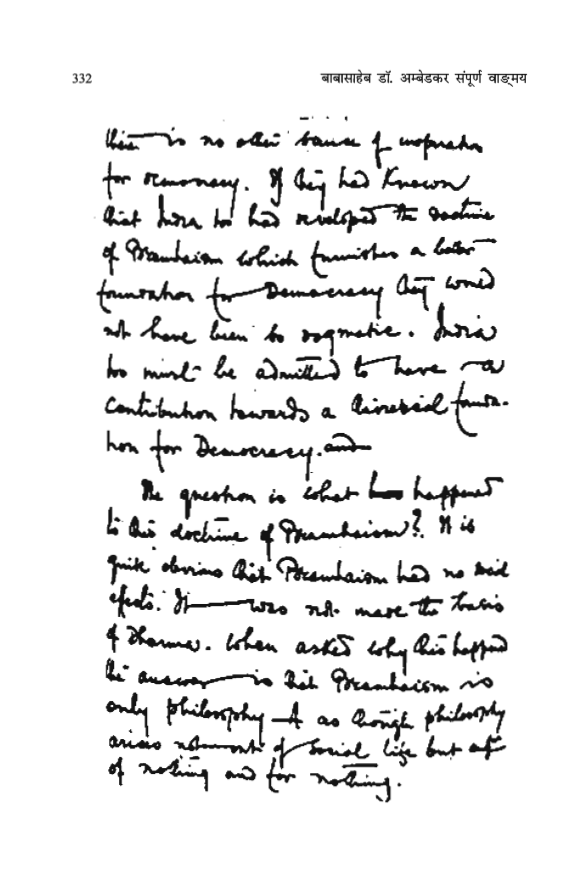 332
बाबासाहेब डॉ. अम्बेडकर संपूर्ण वाङ्मय
there is no other source of inspiration
for democracy. If they had known
that India too had developed the doctrine
of Bramhaism which furnishes a better
foundation for Democracy they would
not have been so dogmatic. India
too must be admitted to have a
contribution towards a theoretical founda-
tion for Democracy. and
The question is what has happened
to this doctrine of Bramhaism? It is
quite obvious that Bramhaism had no social
effects. It was not made the basis
of Dharma. When asked why this happened
the answer is that Bramhaism is
only philosophy as though philosophy
arises not out of social life but out
of nothing and for nothing.